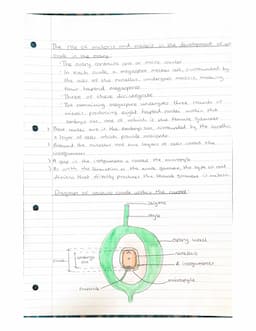 The role of meiosis and mitosis in the development of an
ovule in the ovary
• The ovary contains one or more ovules
• In each ovule a megaspore mother cell, surrounded by
the cells of the nucellus, undergoes meiosis, making
four haploid megaspores
• Three of these disintegrate
• The remaining megaspore undergoes three rounds of
mitosis, producing eight haploid nuclei within the
embryo sac, one of which is the female gamete
These nuclei are in the embryo sac, surrounded by the nucellus
a layer of cells which provide nutrients
Around the nucellus are two layers of cells called the
integuments
A gap in the integuments is called the micropyle
As with the formation of the male gametes, the type of cell
division that directly produces the female gametes is mitosis
Diagram of mature ovule within the carpel:
stigma
style
ovary wall
nucellus
2 integuments
micropyle
ovule
embryo
sac
funicle